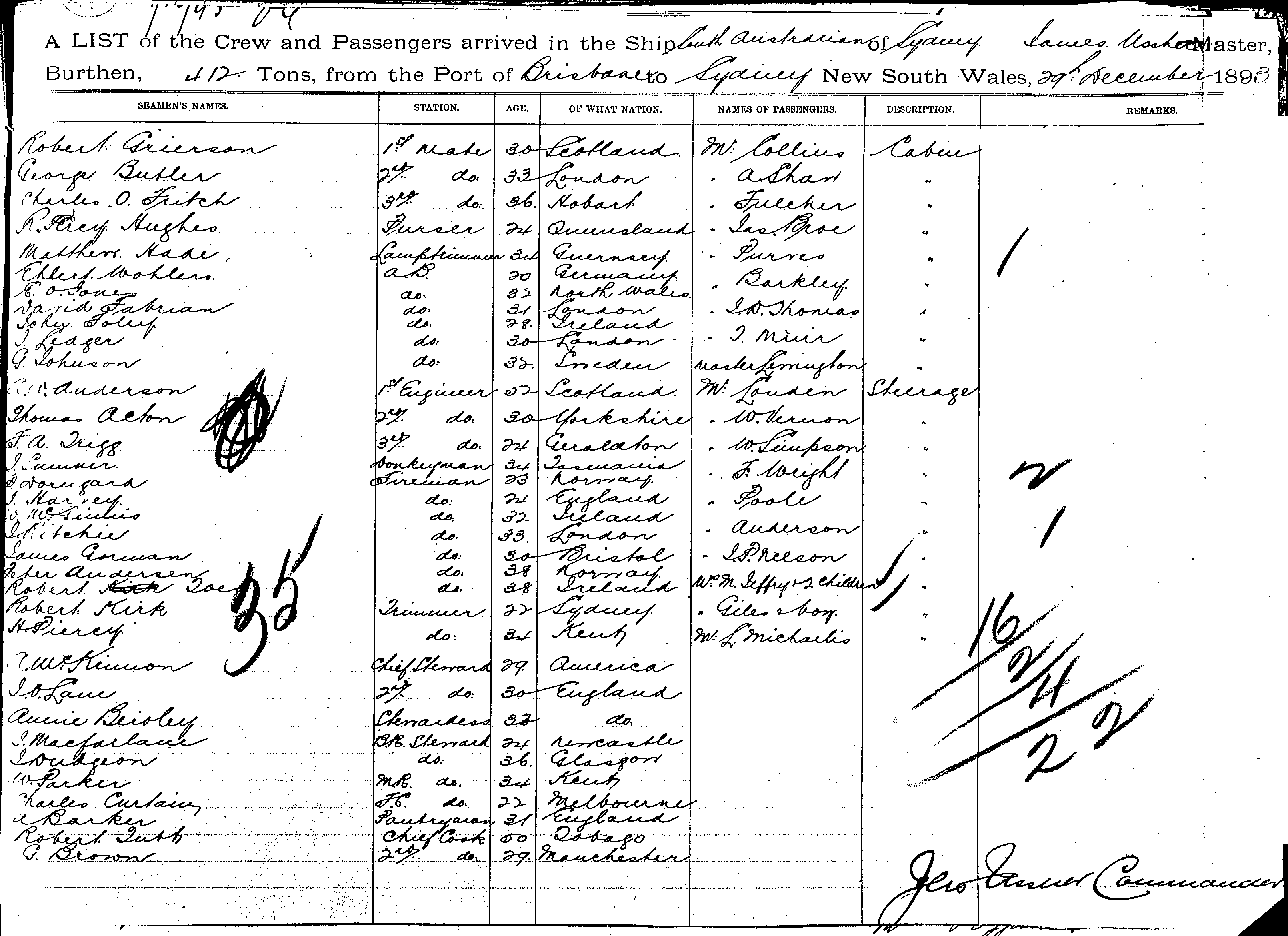 A LIST of the Crew and Passengers arrived in the Ship South Australian of Sydney James Master,
Burthen, 412 Tons, from the Port of Brisbane to Sydney New South Wales, 29th December 1893
SEAMEN'S NAMES. STATION. AGE. OF WHAT NATION. NAMES OF PASSENGERS. DESCRIPTION. REMARKS.
Robert Grierson 1st Mate 30 Scotland Mr Collins Cabin
George Butler 2nd do. 33 London " A Shaw "
Charles O. Fritch 3rd do. 36 Hobart " Fulcher "
R. Percy Hughes Purser 24 Queensland " Jas Broe "
Matthew Hade Lamptrimmer 34 Guernsey " Purves " 1
Ehlert Wohlers A.B. 20 Germany " Barkley "
E. O. Jones do. 32 North Wales
David Fabrian do. 31 London " J.D. Thomas "
John Foley do. 28 Ireland
J. Ledger do. 30 London " J. Muir "
G Johnson do. 32 Sweden Master Lemington "
Anderson 1st Engineer 32 Scotland Mr Louden Steerage
Thomas Acton 2nd do. 30 Yorkshire " W. Vernon "
F. A. Trigg 3rd do. 24 Geraldton " W Simpson "
J Sumner Donkeyman 34 Tasmania " F. Wright " 2
Fireman 23 Norway
J. Harvey do. 24 England " Poole "
McGinnis do. 32 Ireland
J Ritchie do. 33 London " Anderson " 1
James Gorman do. 30 Bristol " J.P. Nelson "
Peter Andersen do. 38 Norway
Robert do. 38 Ireland Mrs M. Jeffry & 2 Children "
Robert Kirk Trimmer 22 Sydney " Giles & boy "
H Piercy do. 34 Kent Mr L Michaelis "
35
16
2
4
22
McKinnon Chief Steward 29 America
J. D. Lane 2nd do. 30 England
Annie Beisley Stewardess 33 do
J. Macfarlane B.R. Steward 24 Newcastle
J Dudgeon do. 36 Glasgow
W. Parker M.R. do. 34 Kent
Charles Curtain F.C. do. 22 Melbourne
Barker Pantryman 31 England
Robert Tubb Chief Cook 50 Tobago
P. Brown 2nd do. 29 Manchester
Commander